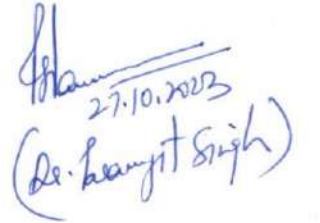 27.10.2023
(Dr. Paramjit Singh)